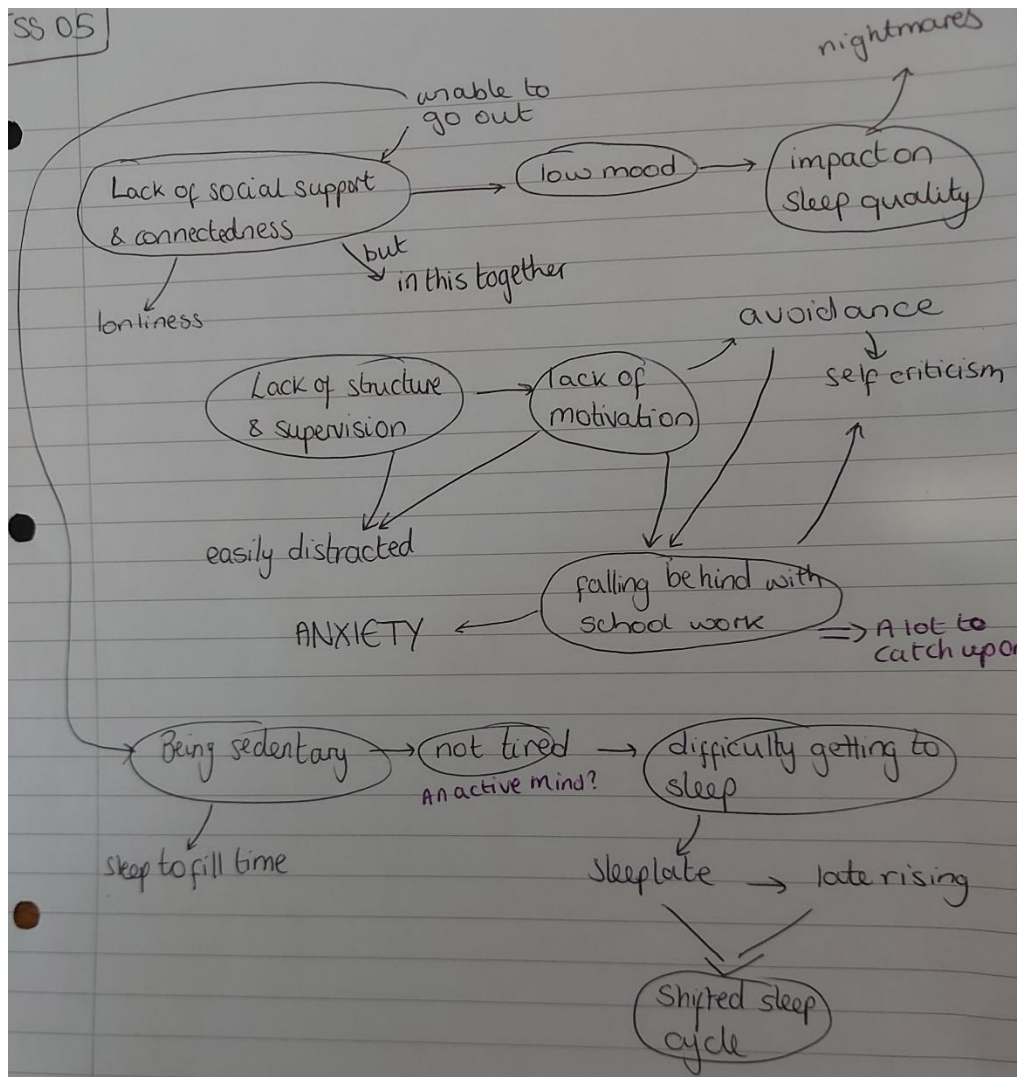 SS 05
nightmares
unable to
go out
Lack of social support
& connectedness
low mood
impact on
sleep quality
but
in this together
lonliness
avoidance
self criticism
Lack of structure
& supervision
lack of
motivation
easily distracted
falling behind with
school work
ANXIETY
A lot to
catch up on
Being sedentary
not tired
An active mind?
difficulty getting to
sleep
sleep to fill time
sleep late
late rising
Shifted sleep
cycle